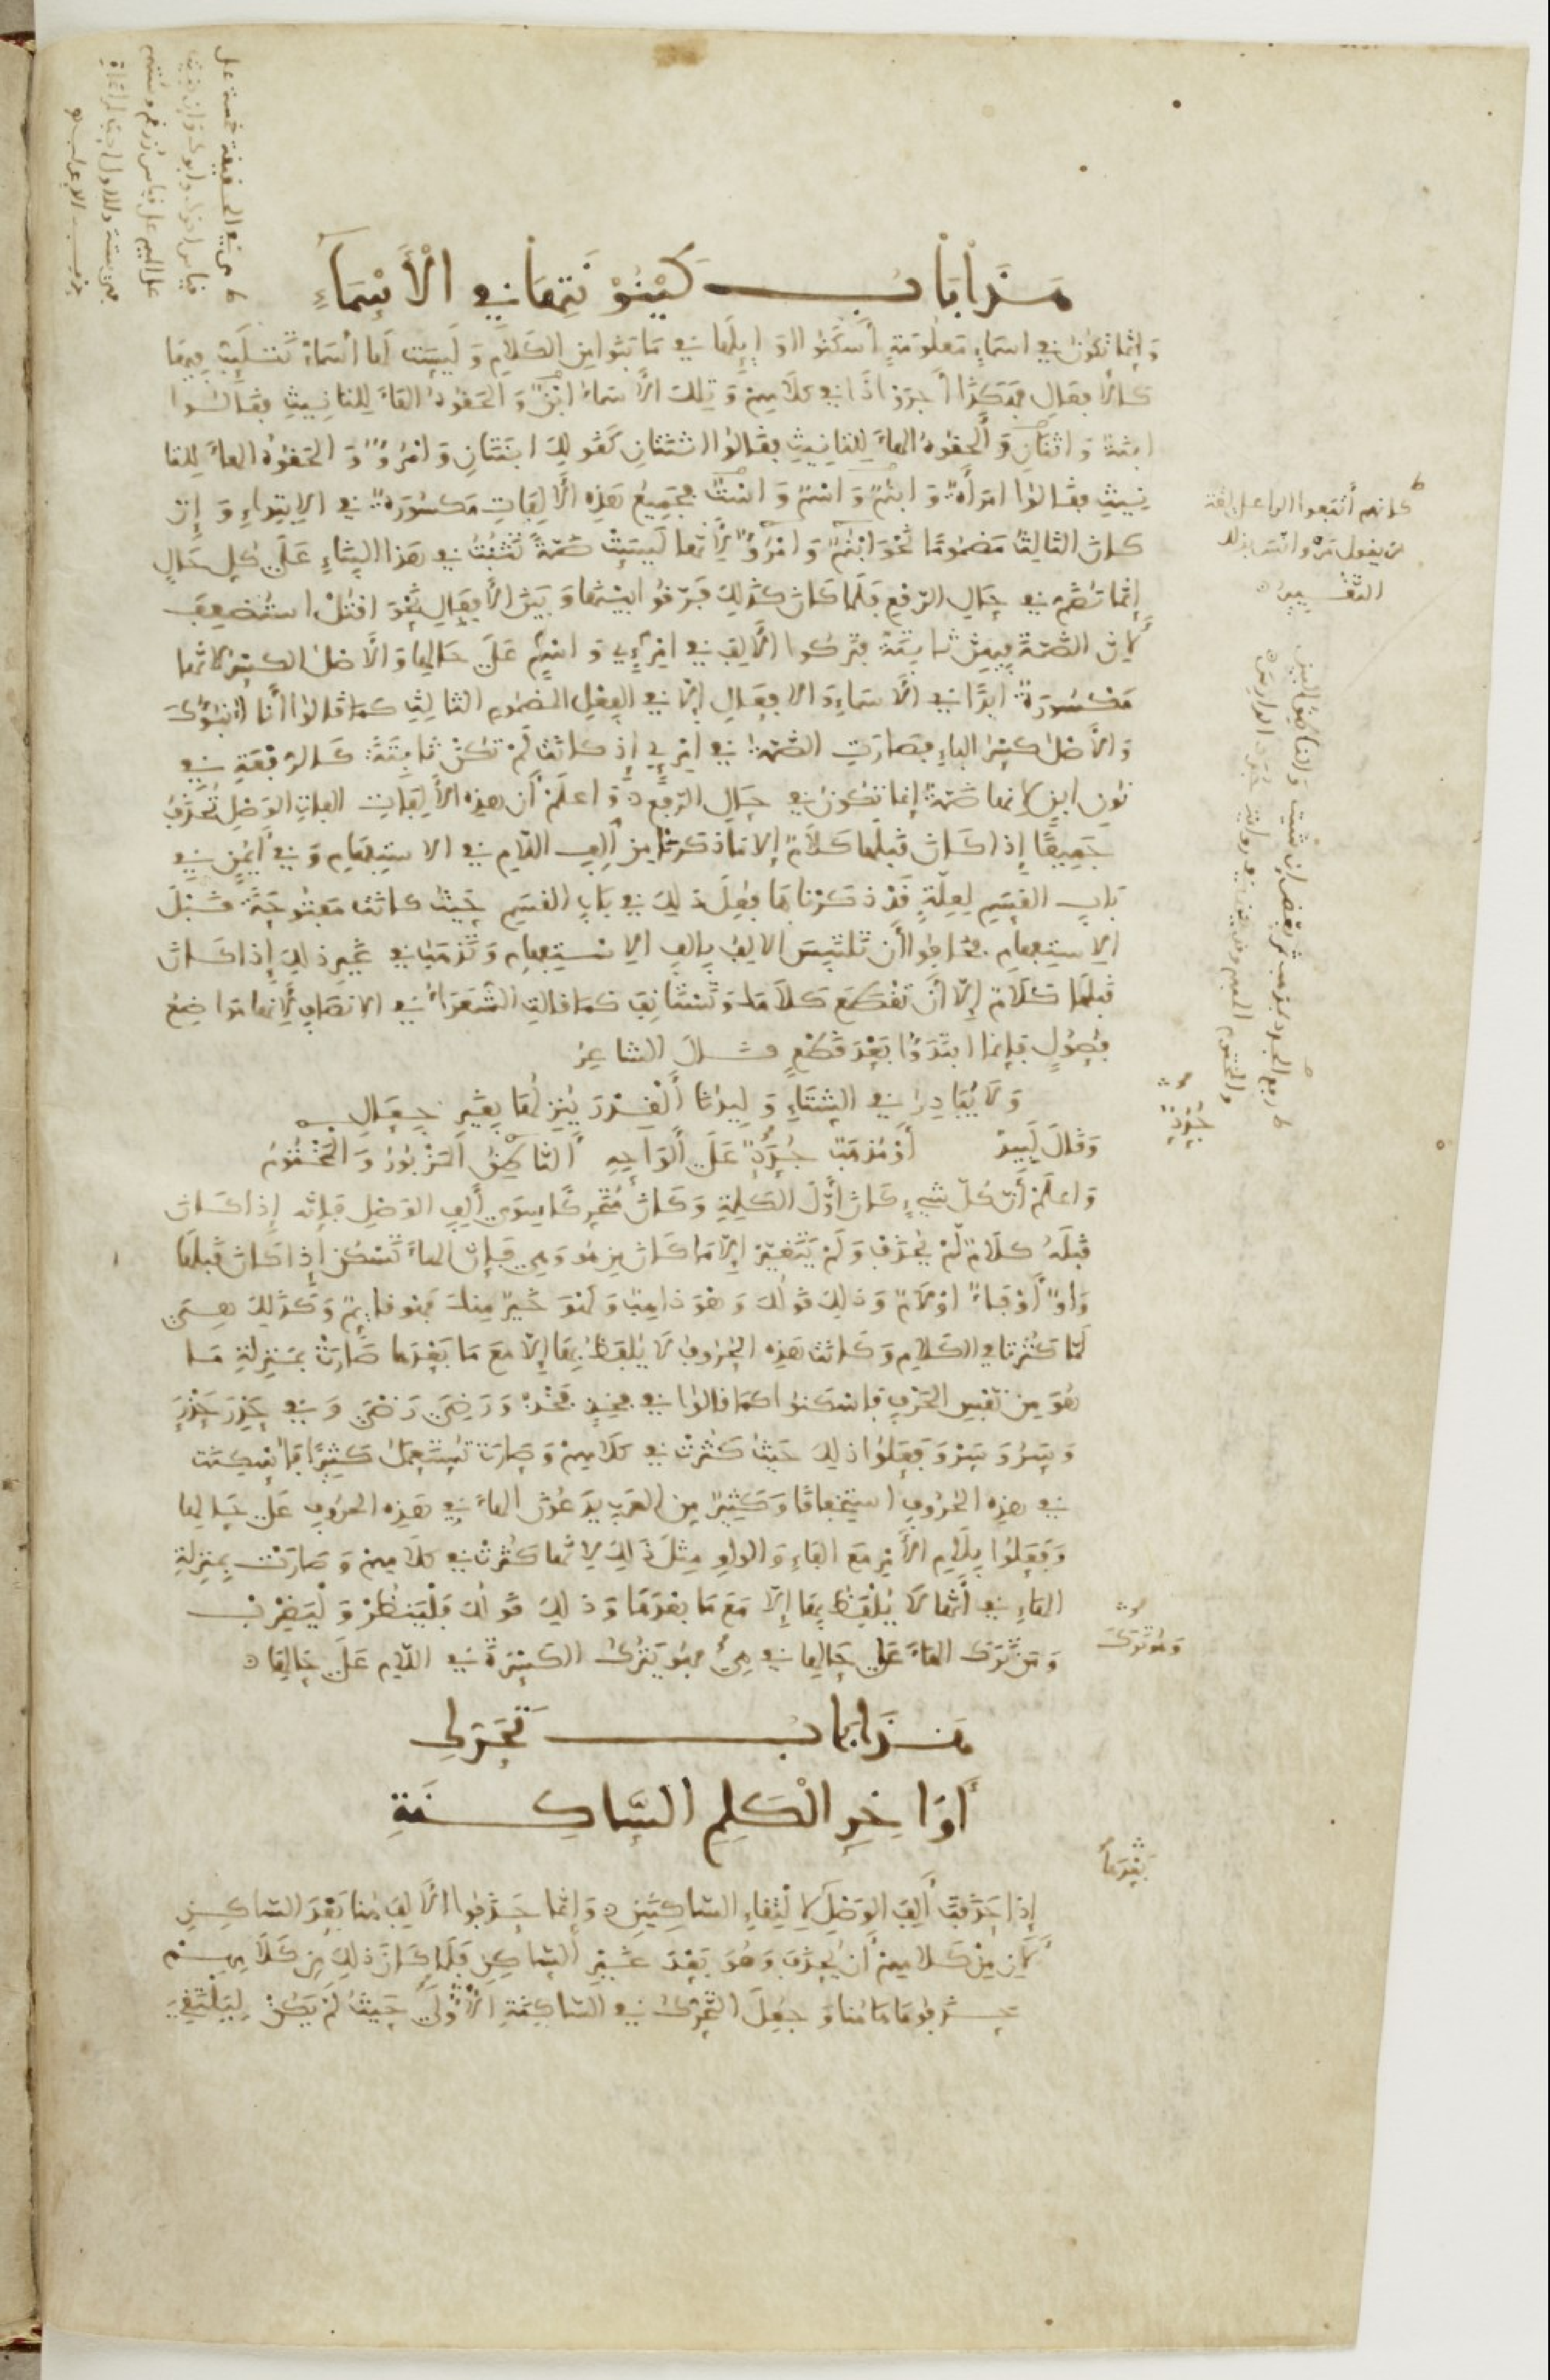 هَذَا بَابُ كَيْنُونَتِهَا فِي الْأَسْمَاءِ
وَإِنَّمَا تَكُونُ فِي أسماءٍ مَعْلُومَةٍ أَسْكَنُوا أَوَائِلَهَا فِي مَا بَنَوا مِن الكَلَامِ وَلَيْسَت لَهَا أَسْمَاءٌ تَتْلَئِبُّ فِيهَا
كالأفعالِ هَكَذَا أَجرَوْا ذَا فِي كلامِهِمْ وَتِلكَ الأسماءُ ابْنٌ وَأَلحَقُوهُ الهَاءَ لِلتأنِيثِ فقَالُوا
ابنةٌ وَاثْنَانِ وَأَلحَقُوهُ الهاءَ لِلتأنِيثِ فقَالُوا اثْنَتَانِ كَقَولِكَ ابنَتَانِ وَامْرُؤٌ وَأَلحَقُوهُ الهاءَ للتا
نِيثِ فقالوا امرَأَةٌ وَابنُمٌ وَاسْمٌ وَاسْتٌ فجَمِيعُ هَذِه الأَلِفَاتِ مَكسُورَةٌ فِي الِابتِدَاءِ وَإِن
كانَ الثالثُ مَضمُومًا نَحْوَ ابْنُمٌ وَامْرُؤٌ لِأَنَّها لَيسَتْ ضَمَّةً تَثْبُتُ فِي هَذا البِنَاءِ عَلَى كلِّ حَالٍ
إنَّمَا تُضَمُّ فِي حَالِ الرّفعِ فَلَمّا كَانَ كَذَلِكَ فَرَّقُوا بَيْنَهَا وَبَيْنَ الأَفعَالِ نَحْوَ اقْتُلْ اسْتُضْعِفَ
لِأَنَّ الضَّمَّةَ فِيهِنَّ ثابِتَةٌ فتَركُوا الأَلِفَ فِي امْرِئٍ وَابْنِمٍ عَلَى حَالِها وَالأَصْلُ الكسْرُ لأنّها
مَكْسُورَةٌ أَبَدًا فِي الأَسمَاءِ وَالأفعَالِ إلّا فِي الفِعْلِ المَضمُومِ الثالِثِ كمَا قَالُوا أَنَا أُنْبُؤُكَ
وَالأَصْلُ كَسْرُ الباءِ فصَارَتِ الضَّمَّةُ فِي امْرُؤٍ إذ كانَت لَمْ تكُنْ ثَابِتَةً كَالرَّفْعَةِ فِي
نُونِ ابنٍ لأنها ضَمَّةٌ إنما تكُونُ فِي حَالِ الرَّفْعِ وَاعلَمْ أَنّ هذِهِ الأَلِفَاتِ ألِفاتِ الوَصْلِ تُحْذَفُ
جَمِيعًا إذا كَانَ قَبلَها كَلَامٌ إلّا مَا ذكَرْنَا مِنْ أَلِفِ اللّامِ فِي الاسْتِفهَامِ وَفِي أَيمُنٍ فِي
بَابِ القَسَمِ لِعِلَّةٍ قَدْ ذكَرْنَاهَا فُعِلَ ذَلِكَ فِي بَابِ القَسَمِ حَيْثُ كانَت مَفتُوحَةً قَبْلَ
الاسْتِفهامِ فخَافُوا أَن تَلتَبِسَ الألِفُ بأَلِفِ الِاسْتِفهامِ وَتَذهَبُ فِي غَيرِ ذَلِكَ إذا كَانَ
قَبلَهَا كَلَامٌ إلّا أَنْ تَقْطَعَ كَلَامَكَ وَتَسْتَأنِفَ كمَا قالَتِ الشُّعَرَاءُ فِي الأنصافِ لِأَنها مَوَاضِعُ
فُصُولٍ فإنما ابتَدَؤُا بَعْدَ قَطْعٍ قَالَ الشاعِرُ
وَلَا يُبَادِرُ فِي الشِّتَاءِ وَلِيدُنَا أَلْقِدْرَ يُنْزِلُهَا بِغَيْرِ جِعَالِ
وَقَالَ لَبِيدٌ أَوْ مُذهَبٌ جُدَدٌ عَلَى أَلْوَاحِهِ أَلنّاطِقُ المَزْبُورُ وَالمَخْتُومُ
وَاعلَمْ أَنَّ كُلَّ شَيءٍ كَانَ أَوَّلَ الكَلِمَةِ وَكَانَ مُتَحَرِّكًا سِوَى أَلِفِ الوَصْلِ فإنَّه إذا كَانَ
قَبْلَهُ كلَامٌ لَمْ يُحذَفْ وَلَمْ يَتَغَيَّرْ إلّا مَا كَانَ مِن هُوَ وَهِيَ فَإنَّ الهاءَ تَسْكُنُ إذا كَانَ قَبلَها
وَاوٌ أَوْ فَاءٌ أوْ لَامٌ وَذَلِكَ قَولُكَ وَهْوَ ذَاهِبٌ وَلَهْوَ خَيرٌ مِنكَ فَهْوَ قَائِمٌ وَكَذَلِكَ هِيَ
لَمّا كَثُرَتَا فِي الكلامِ وَكَانَت هَذِه الحُرُوفُ لَا يُلفَظُ بِهَا إلّا مَعَ مَا بَعْدَهَا صَارَتْ بمَنزِلَةِ مَا
هُوَ مِن نَفْسِ الحَرْفِ فأَسْكَنُوا كمَا قالُوا فِي فَخِذٍ فَخْذٌ وَرَضِيَ رَضْيَ وَفِي حَذِرَ حَذْرَ
وَسَرُوَ سَرْوَ فَعَلُوا ذلِكَ حَيْثُ كَثُرَتْ فِي كلَامِهِمْ وَصَارَت تُستَعمَلُ كثِيرًا فأُسْكِنَت
فِي هذِهِ الحُرُوفِ استِخفافًا وَكَثِيرٌ مِن العَرَبِ يَدَعُونَ الهاءَ فِي هَذِهِ الحرُوفِ عَلَى حَالِها
وَفَعَلُوا بِلَامِ الأَمْرِ مَعَ الفَاءِ وَالواوِ مِثْلَ ذَلِكَ لأَنَّها كَثُرَتْ فِي كلَامِهِمْ وَصَارَتْ بمَنزِلَةِ
الهاءِ فِي أَنَّها لَا يُلْفَظُ بِهَا إلّا مَعَ مَا بَعْدَهَا وَذلِكَ قَولُكَ فَلْيَنظُرْ وَلْيَضْرِبْ
وَمَن تَرَكَ الهاءَ عَلَى حَالِها فِي هِيَ وَهُوَ تَرَكَ الكَسْرَةَ فِي اللّامِ عَلَى حَالِهَا
هَذَا بَابُ تَحَرُّكِ
أَوَاخِرِ الْكَلِمِ السَّاكِنَةِ
إذا حَذَفْتَ أَلِفَ الوَصْلِ لِالْتِقاءِ السّاكِنَيْنِ وَإنّما حَذَفُوا الأَلِفَ هُنا بَعْدَ السّاكِنِ
لِأَنَّ مِنْ كَلامِهِمْ أَنْ يُحذَفَ وَهُوَ بَعْدَ غَيْرِ السّاكِنِ فَلَمّا كَانَ ذلِكَ مِن كَلَامِهِمْ
حَذَفُوهَا هَاهُنا وَجَعِلَ التّحَرُّكُ فِي السّاكِنَةِ الأُولَى حَيْثُ لَمْ يَكُنْ لِيَلْتَقِيَ